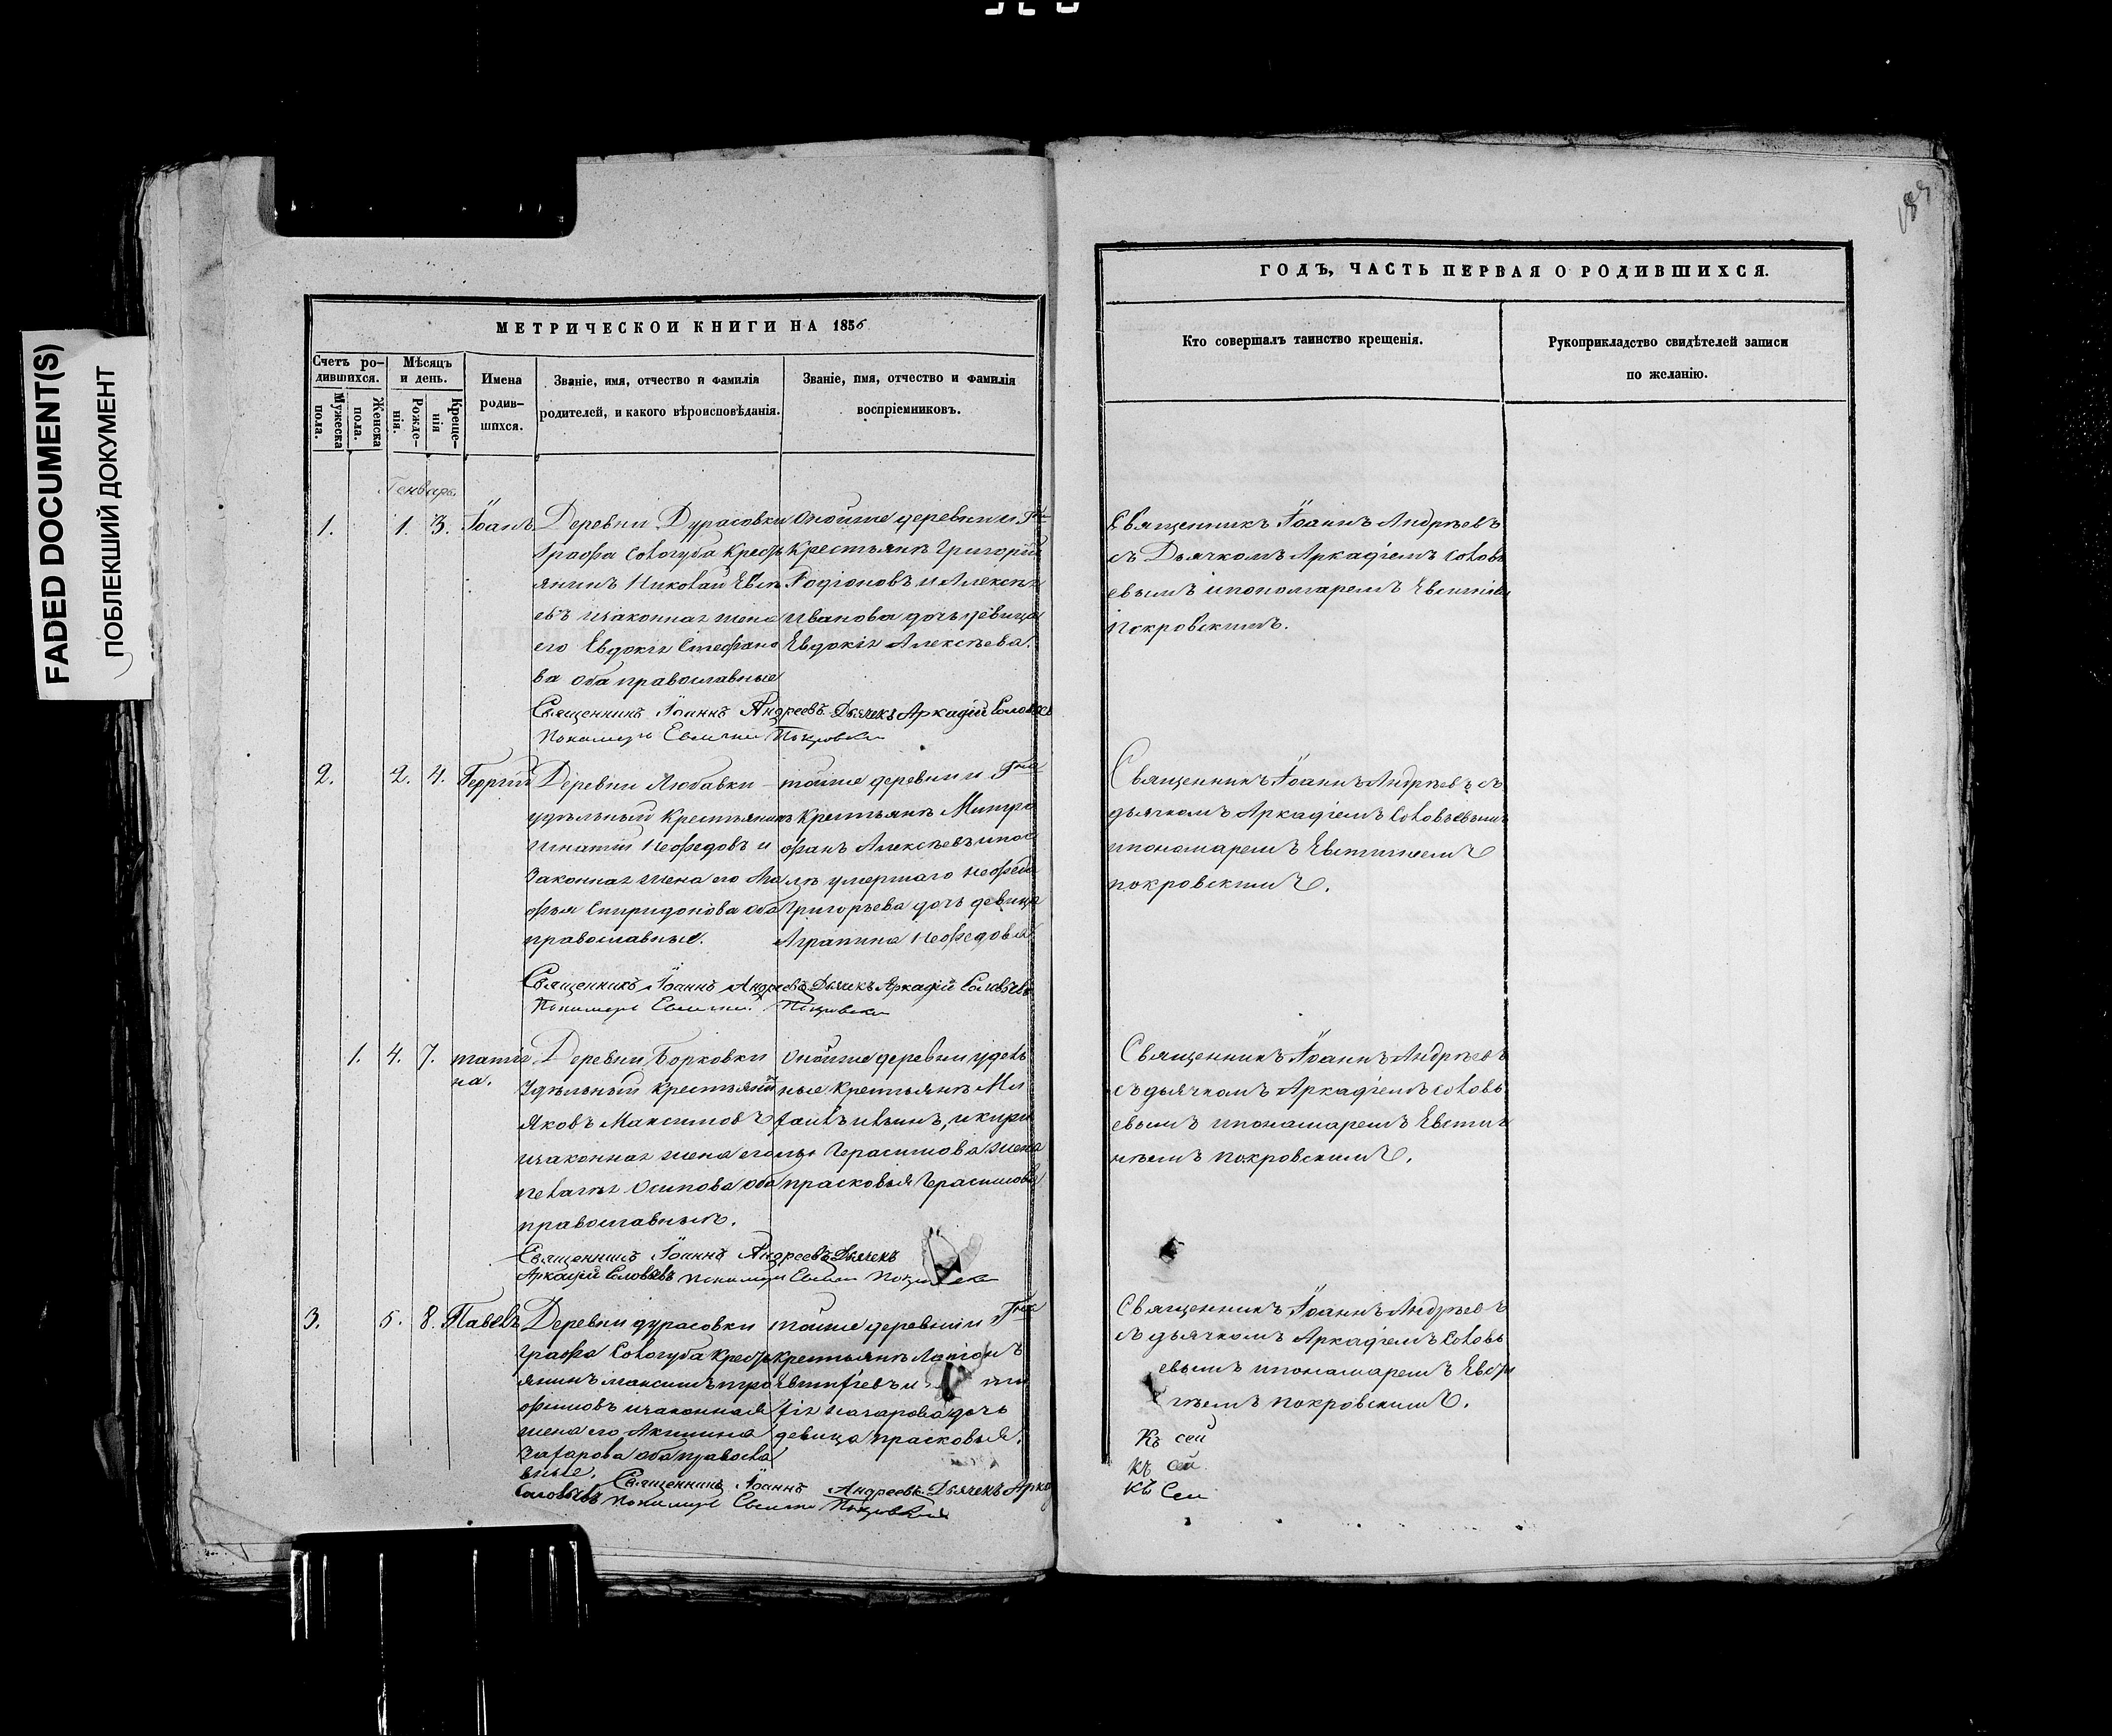 FADED DOCUMENT(S)
ПОБЛЕКШИЙ ДОКУМЕНТ
МЕТРИЧЕСКОИ КНИГИ НА 1856
Счетъ ро-
дившихся.
Мужеска
пола.
Женска
пола.
Мѣсяцъ
и день.
Рожде-
нія.
Креще-
нія
Имена
родив-
шихся.
Званіе, имя, отчество и фамилія
родителей, и какого вѣроисповѣданія.
Званіе, имя, отчество и фамилія
воспріемниковъ.
Генварь
1. 1. 3. Іоанъ
Деревни Дурасовки
Графа Сологуба Кресть
янинъ Николай
евъ изаконная жена
его Евдокія Стефано
ва оба православные
Оной же деревни и Гна
Крестьянъ Григорій
Родіоновъ и Алексѣя
Иванова дочь девица
Евдокія Алексѣева.
Священникъ Іоаннъ Андреевъ Дьячекъ Аркадій Соловьевъ
Пономарь Покровскій
2. 2. 4. Георгій
Деревни Любавки
удѣльный Крестьянинъ
Игнатій Нефедовъ и
Законная жена его Ага
фья Спиридонова оба
православные.
тойже деревни и Гна
Крестьянъ Митро
фанъ Алексѣевъ ипос
лѣ умершаго Нефеда
Григорьева дочь девица
Аграпина Нефедова
Священникъ Іоаннъ Андреевъ Дьячекъ Аркадій Соловьевъ
Пономарь Покровскій
1. 4. 7. татія
на.
Деревни Борковки
Удѣльный Крестьянинъ
Яковъ Максимовъ
изаконная жена его
пелагія Осипова оба
православныя.
Онойже деревни удѣль
ные Крестьянъ Ми
хаилъ ильинъ, и кири
лы Герасимова жена
прасковья Герасимова
Священникъ Іоаннъ Андреевъ Дьячекъ
Аркадій Соловьевъ пономарь
3. 5. 8. Павелъ
Деревни дурасовки
графа Сологуба Кресть
янинъ максимъ тро
фимовъ изаконная
жена его Акилина
Захарова оба правосла
вные.
тойже деревни и Гна
крестьянъ
Евтифіевъ и
назарова дочь
девица прасковья.
Священникъ Іоаннъ Андреевъ Дьячекъ Арка
Соловьевъ пономарь Покровскій
183
ГОДЪ, ЧАСТЬ ПЕРВАЯ О РОДИВШИХСЯ.
Кто совершалъ таинство крещенія.
Рукоприкладство свидѣтелей записи
по желанію.
Священникъ Іоаннъ Андрѣевъ
съ Дьячкомъ Аркадіемъ Соловь
евымъ ипономаремъ
Покровскимъ.
Священникъ Іоаннъ Андрѣевъ съ
дьячкомъ Аркадіемъ Соловьевымъ
ипономаремъ
покровскимъ.
Священникъ Іоаннъ Андрѣевъ
съ дьячкомъ Аркадіемъ Соловь
евымъ ипономаремъ
покровскимъ.
Священникъ Іоаннъ Андрѣевъ
съ дьячкомъ Аркадіемъ Соловь
евымъ ипономаремъ
покровскимъ.
Къ сей
къ сей
къ Сей